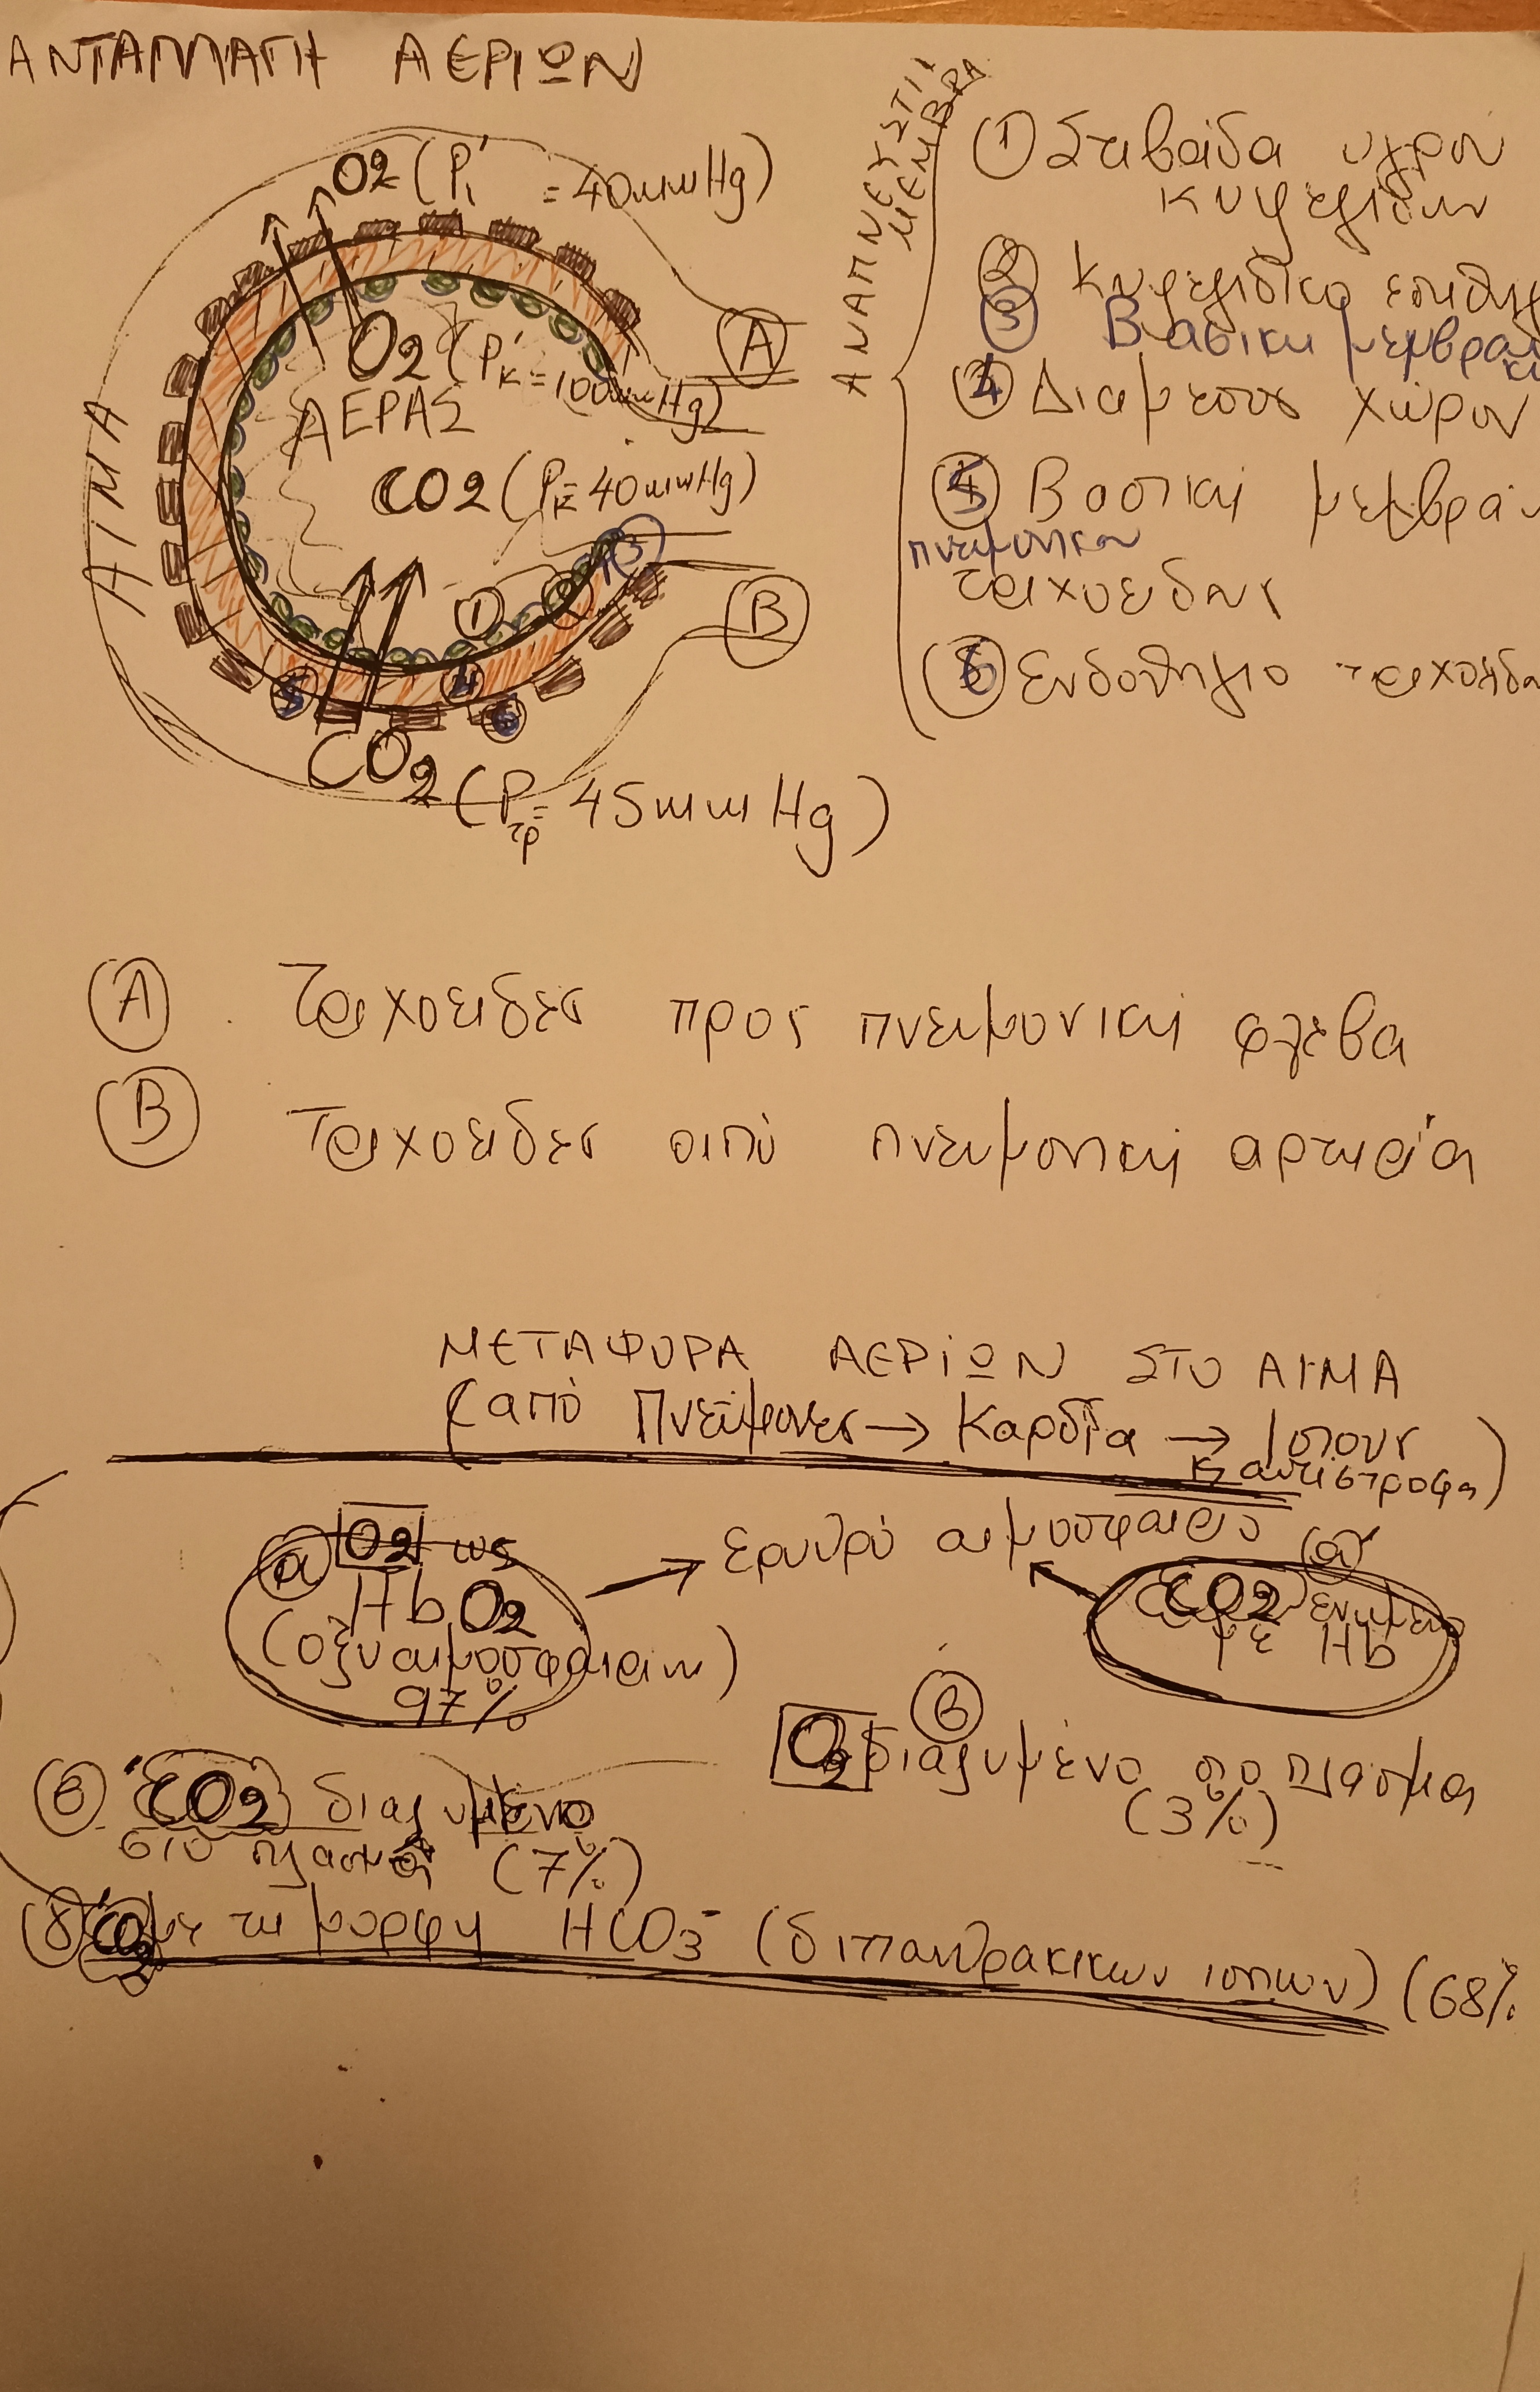 ΑΝΤΑΛΛΑΓΗ ΑΕΡΙΩΝ
O2 (P = 40mmHg)
O2 (Pκ = 100mmHg)
ΑΕΡΑΣ
CO2 (Pκ = 40mmHg)
ΑΙΜΑ
A
B
1
2
3
5
4
6
CO2 (Pτρ = 45mmHg)
ΑΝΑΠΝΕΥΣΤΙΚΗ
ΜΕΜΒΡΑ
1 Στιβάδα υγρού
κυψελίδων
2 Κυψελιδικό επιθη
3 Βασική μεμβρα
4 Διάμεσος χώρου
5 Βασική μεμβρά
πνευμονικού
τριχοειδούς
6 Ενδοθήλιο τριχοειδο
A Τριχοειδές προς πνευμονική φλέβα
B Τριχοειδές από πνευμονική αρτηρία
ΜΕΤΑΦΟΡΑ ΑΕΡΙΩΝ ΣΤΟ ΑΙΜΑ
(από Πνεύμονες → Καρδία → Ιστούς
κ αντίστροφα)
α O2 ως
HbO2
(οξυαιμοσφαιρίνη)
97%
→ ερυθρό αιμοσφαίριο
α CO2 ενωμένο
με Hb
β
O2 διαλυμένο στο πλάσμα
(3%)
β CO2 διαλυμένο
στο πλάσμα (7%)
γ CO2 με τη μορφή HCO3- (διττανθρακικών ιόντων) (68%